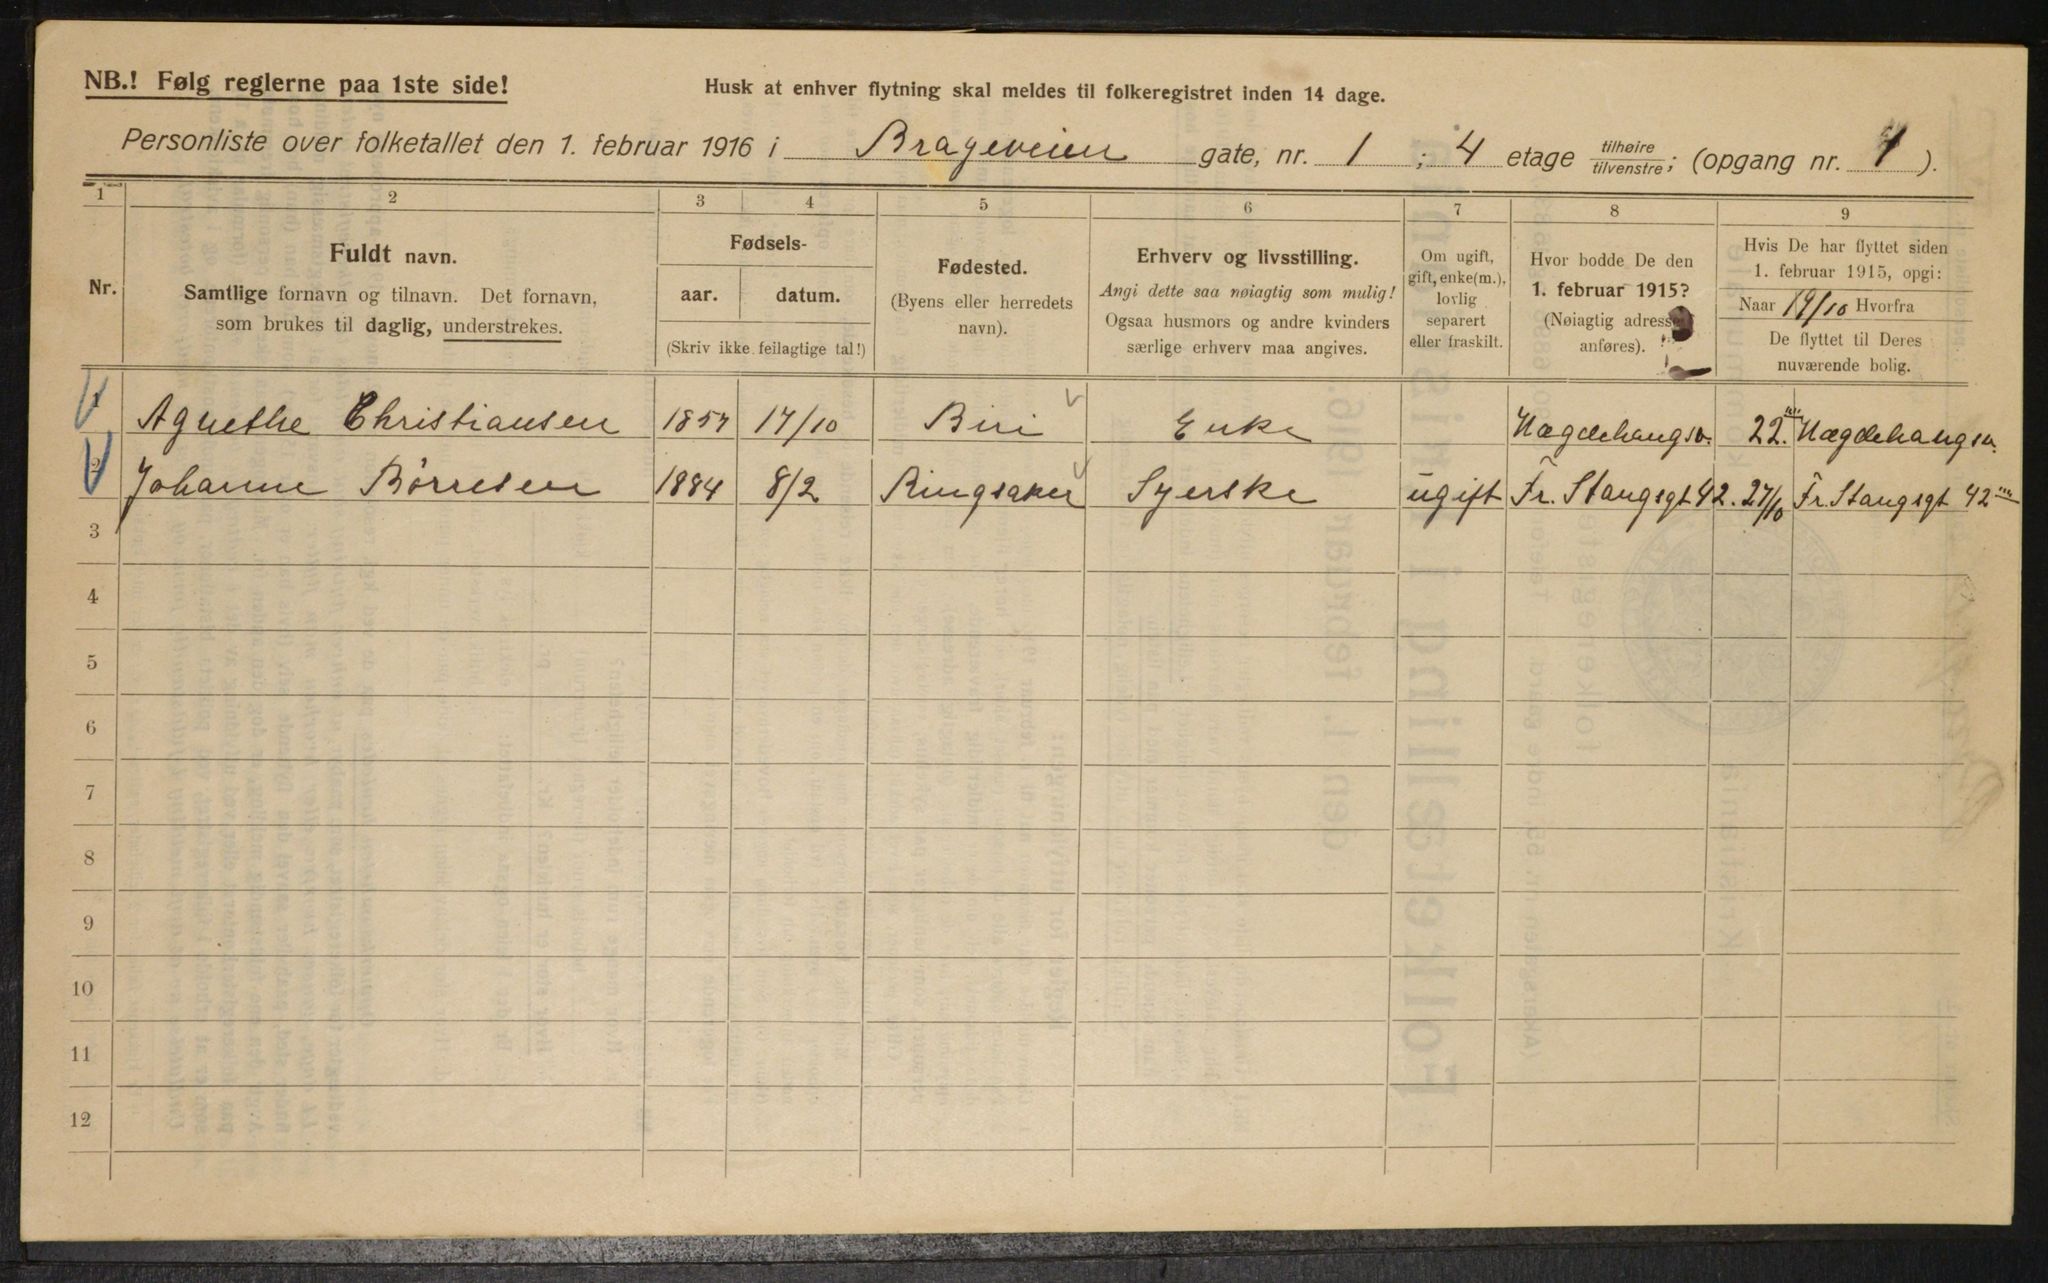 NB.! Følg reglerne paa 1ste side!
Husk at enhver flytning skal meldes til folkeregistret inden 14 dage.
Personliste over folketallet den 1. februar 1916 i Brageveien gate, nr. 1 ; 4 etage tilhøire/tilvenstre; (opgang nr. 1).
1 2 3 4 5 6 7 8 9
Nr.
Fuldt navn.
Samtlige fornavn og tilnavn. Det fornavn,
som brukes til daglig, understrekes.
Fødsels-
aar. datum.
(Skriv ikke feilagtige tal!)
Fødested.
(Byens eller herredets
navn).
Erhverv og livsstilling.
Angi dette saa nøiagtig som mulig!
Ogsaa husmors og andre kvinders
særlige erhverv maa angives.
Om ugift,
gift, enke(m.),
lovlig
separert
eller fraskilt.
Hvor bodde De den
1. februar 1915?
(Nøiagtig adresse
anføres).
Hvis De har flyttet siden
1. februar 1915, opgi:
Naar 19/10 Hvorfra
De flyttet til Deres
nuværende bolig.
1 Agnethe Christiansen 1857 17/10 Biri Enke Hægdehaugsv. 22. Hægdehaugsv.
2 Johanne Børresen 1884 8/2 Ringsaker Syerske ugift Fr. Stangsgt 42. 27/10 Fr. Stangsgt 42
3
4
5
6
7
8
9
10
11
12